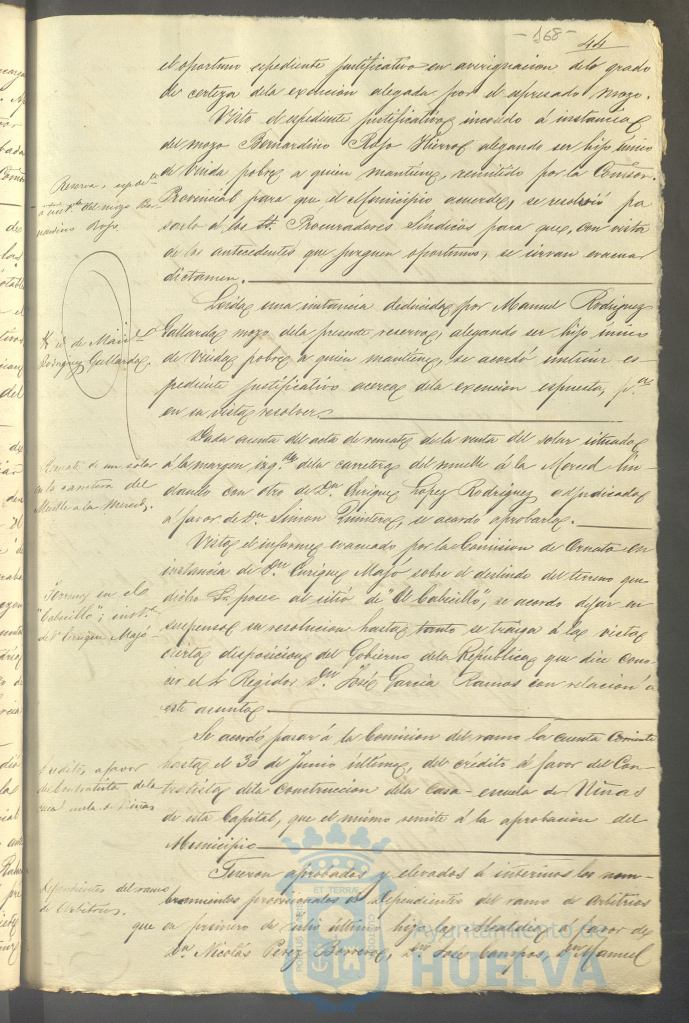 -168-
44
el oportuno espediente justificativo en averiguacion del grado
de certeza dela exencion alegada por el espresado mozo.
Visto el espediente justificativo incoado á instancia
del mozo Bernardino Rojo Hierro alegando ser hijo único
de Viuda pobre a quien mantiene, remitido por la Comision
Provincial para que el Municipio acuerde, se resolvió pa
sarlo á los Procuradores Sindicos para que, con vista
de los antecedentes que juzguen oportunos, se sirvan evacuar
dictamen.
Reserva, esp.te
del mozo Ber-
nardino Rojo.
Leida una instancia deducida por Manuel Rodriguez
Gallardo, mozo dela presente reserva, alegando ser hijo único
de Viuda pobre á quien mantiene, se acordó instruir es-
pediente justificativo acerca dela exencion espuesta, p.a
en su vista resolver.
id de Man.l
Rodriguez Gallardo.
Dada cuenta del acta de remate de la venta del solar situado
á la margen izq.da dela carretera del muelle á la Merced lin-
dando con otro de Dn. Enrique Lopez Rodriguez, adjudicado
a favor de Dn. Simon Quintero, se acordo aprobarla.
Remate de un solar
en la carretera del
Muelle a la Merced.
Visto el informe evacuado por la Comision de Ornato en
instancia de Dn. Enrique Mayo sobre el deslinde del terreno que
dicho Sr. posee al sitio de "El Cabecillo", se acordo dejar en
suspenso su resolucion hasta tanto se traiga á la vista
cierta disposicion del Gobierno dela República que dice cono-
cer el Sr. Regidor Dn. José Garcia Ramos con relacion á
este asunto.
Terreno en el
"Cabecillo"; inst.a
de D. Enrique Mayo
Se acordó pasar á la Comision del ramo la cuenta corriente
hasta el 30 de Junio último, del crédito á favor del Con-
tratista dela construccion dela Casa-escuela de Niñas
de esta Capital, que el mismo remite á la aprobacion del
Municipio.
Credito a favor
del contratista dela
escuela de Niñas
Fueron aprobados y elevados á interinos los nom-
bramientos provisionales de dependientes del ramo de Arbitrios
que en primero de Julio último hizo la Alcaldia á favor de
Dn. Nicolás Perez Borrero, Dn. José Campos, Dn. Manuel
Dependientes del ramo
de Arbitrios.
Ayuntamiento de
HUELVA